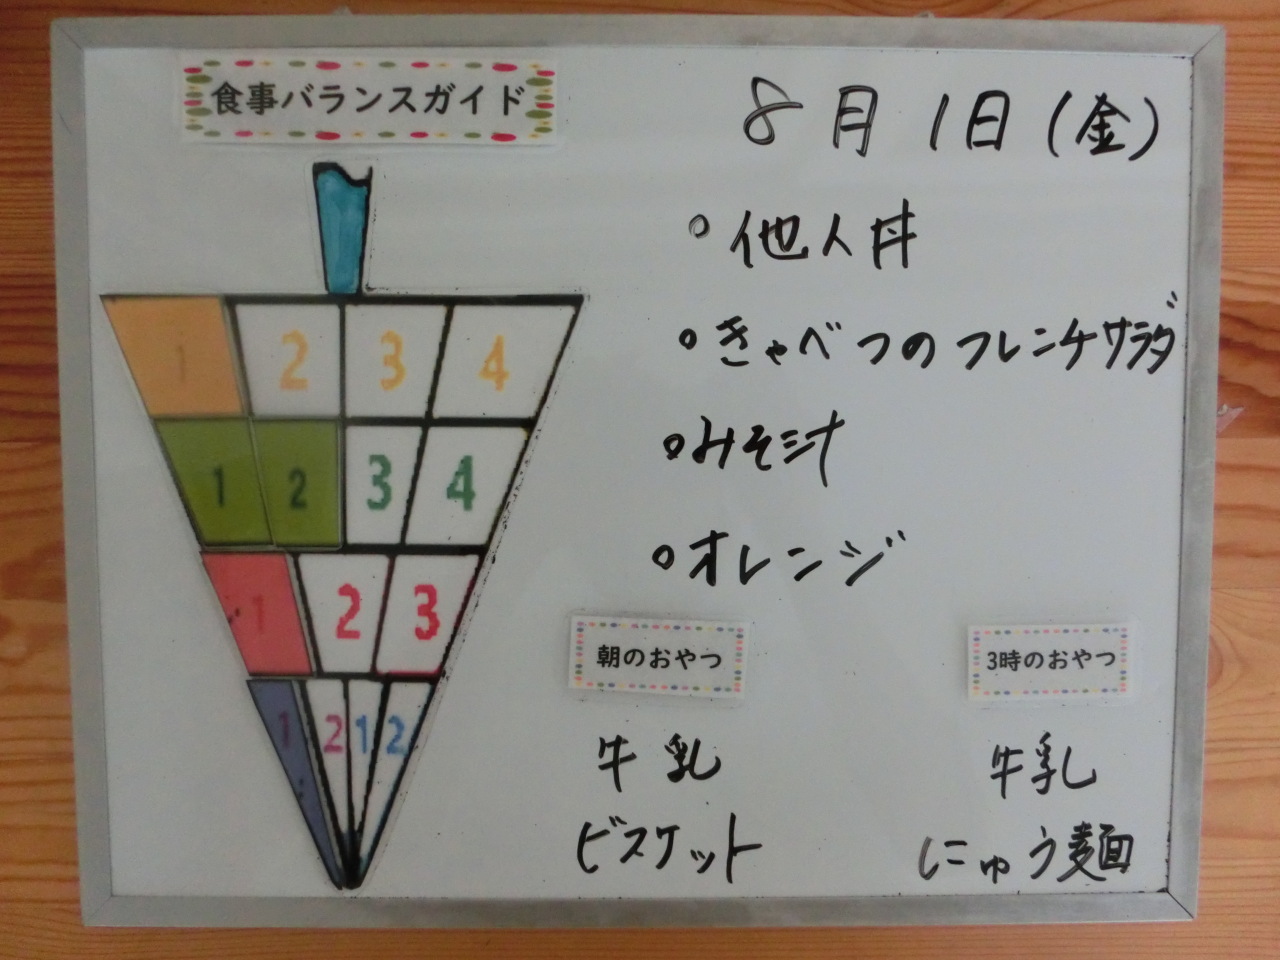 食事バランスガイド
8月1日(金)
・他人丼
・きゃべつのフレンチサラダ
・みそ汁
・オレンジ
1 2 3 4
1 2 3 4
1 2 3
1 2 1 2
朝のおやつ
牛乳
ビスケット
3時のおやつ
牛乳
にゅう麺